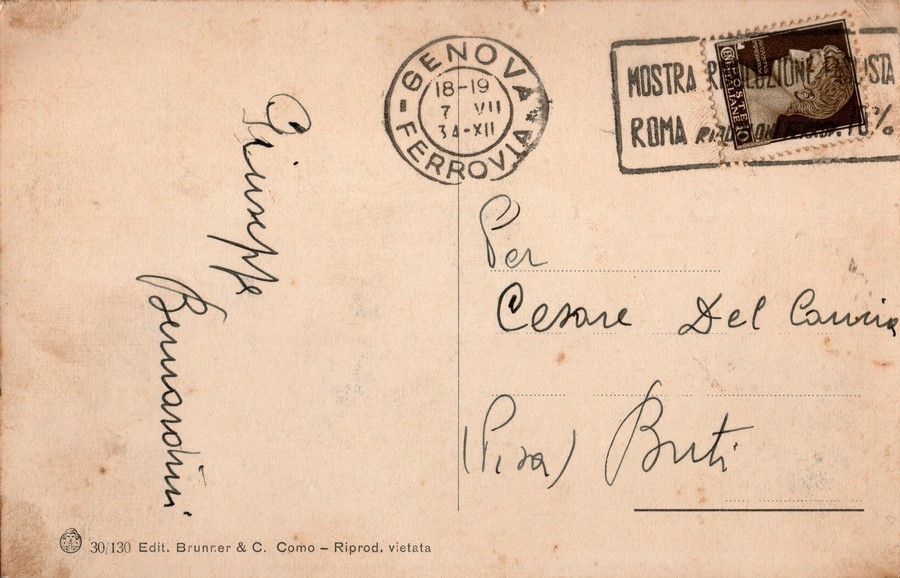 GENOVA
18-19
7 VII
34-XII
FERROVIA
MOSTRA RIVOLUZIONE FASCISTA
ROMA
POSTE
ITALIANE
Giuseppe
Bernardini
Per
Cesare Del
(Pisa) Buti
30/130 Edit. Brunner & C. Como – Riprod. vietata